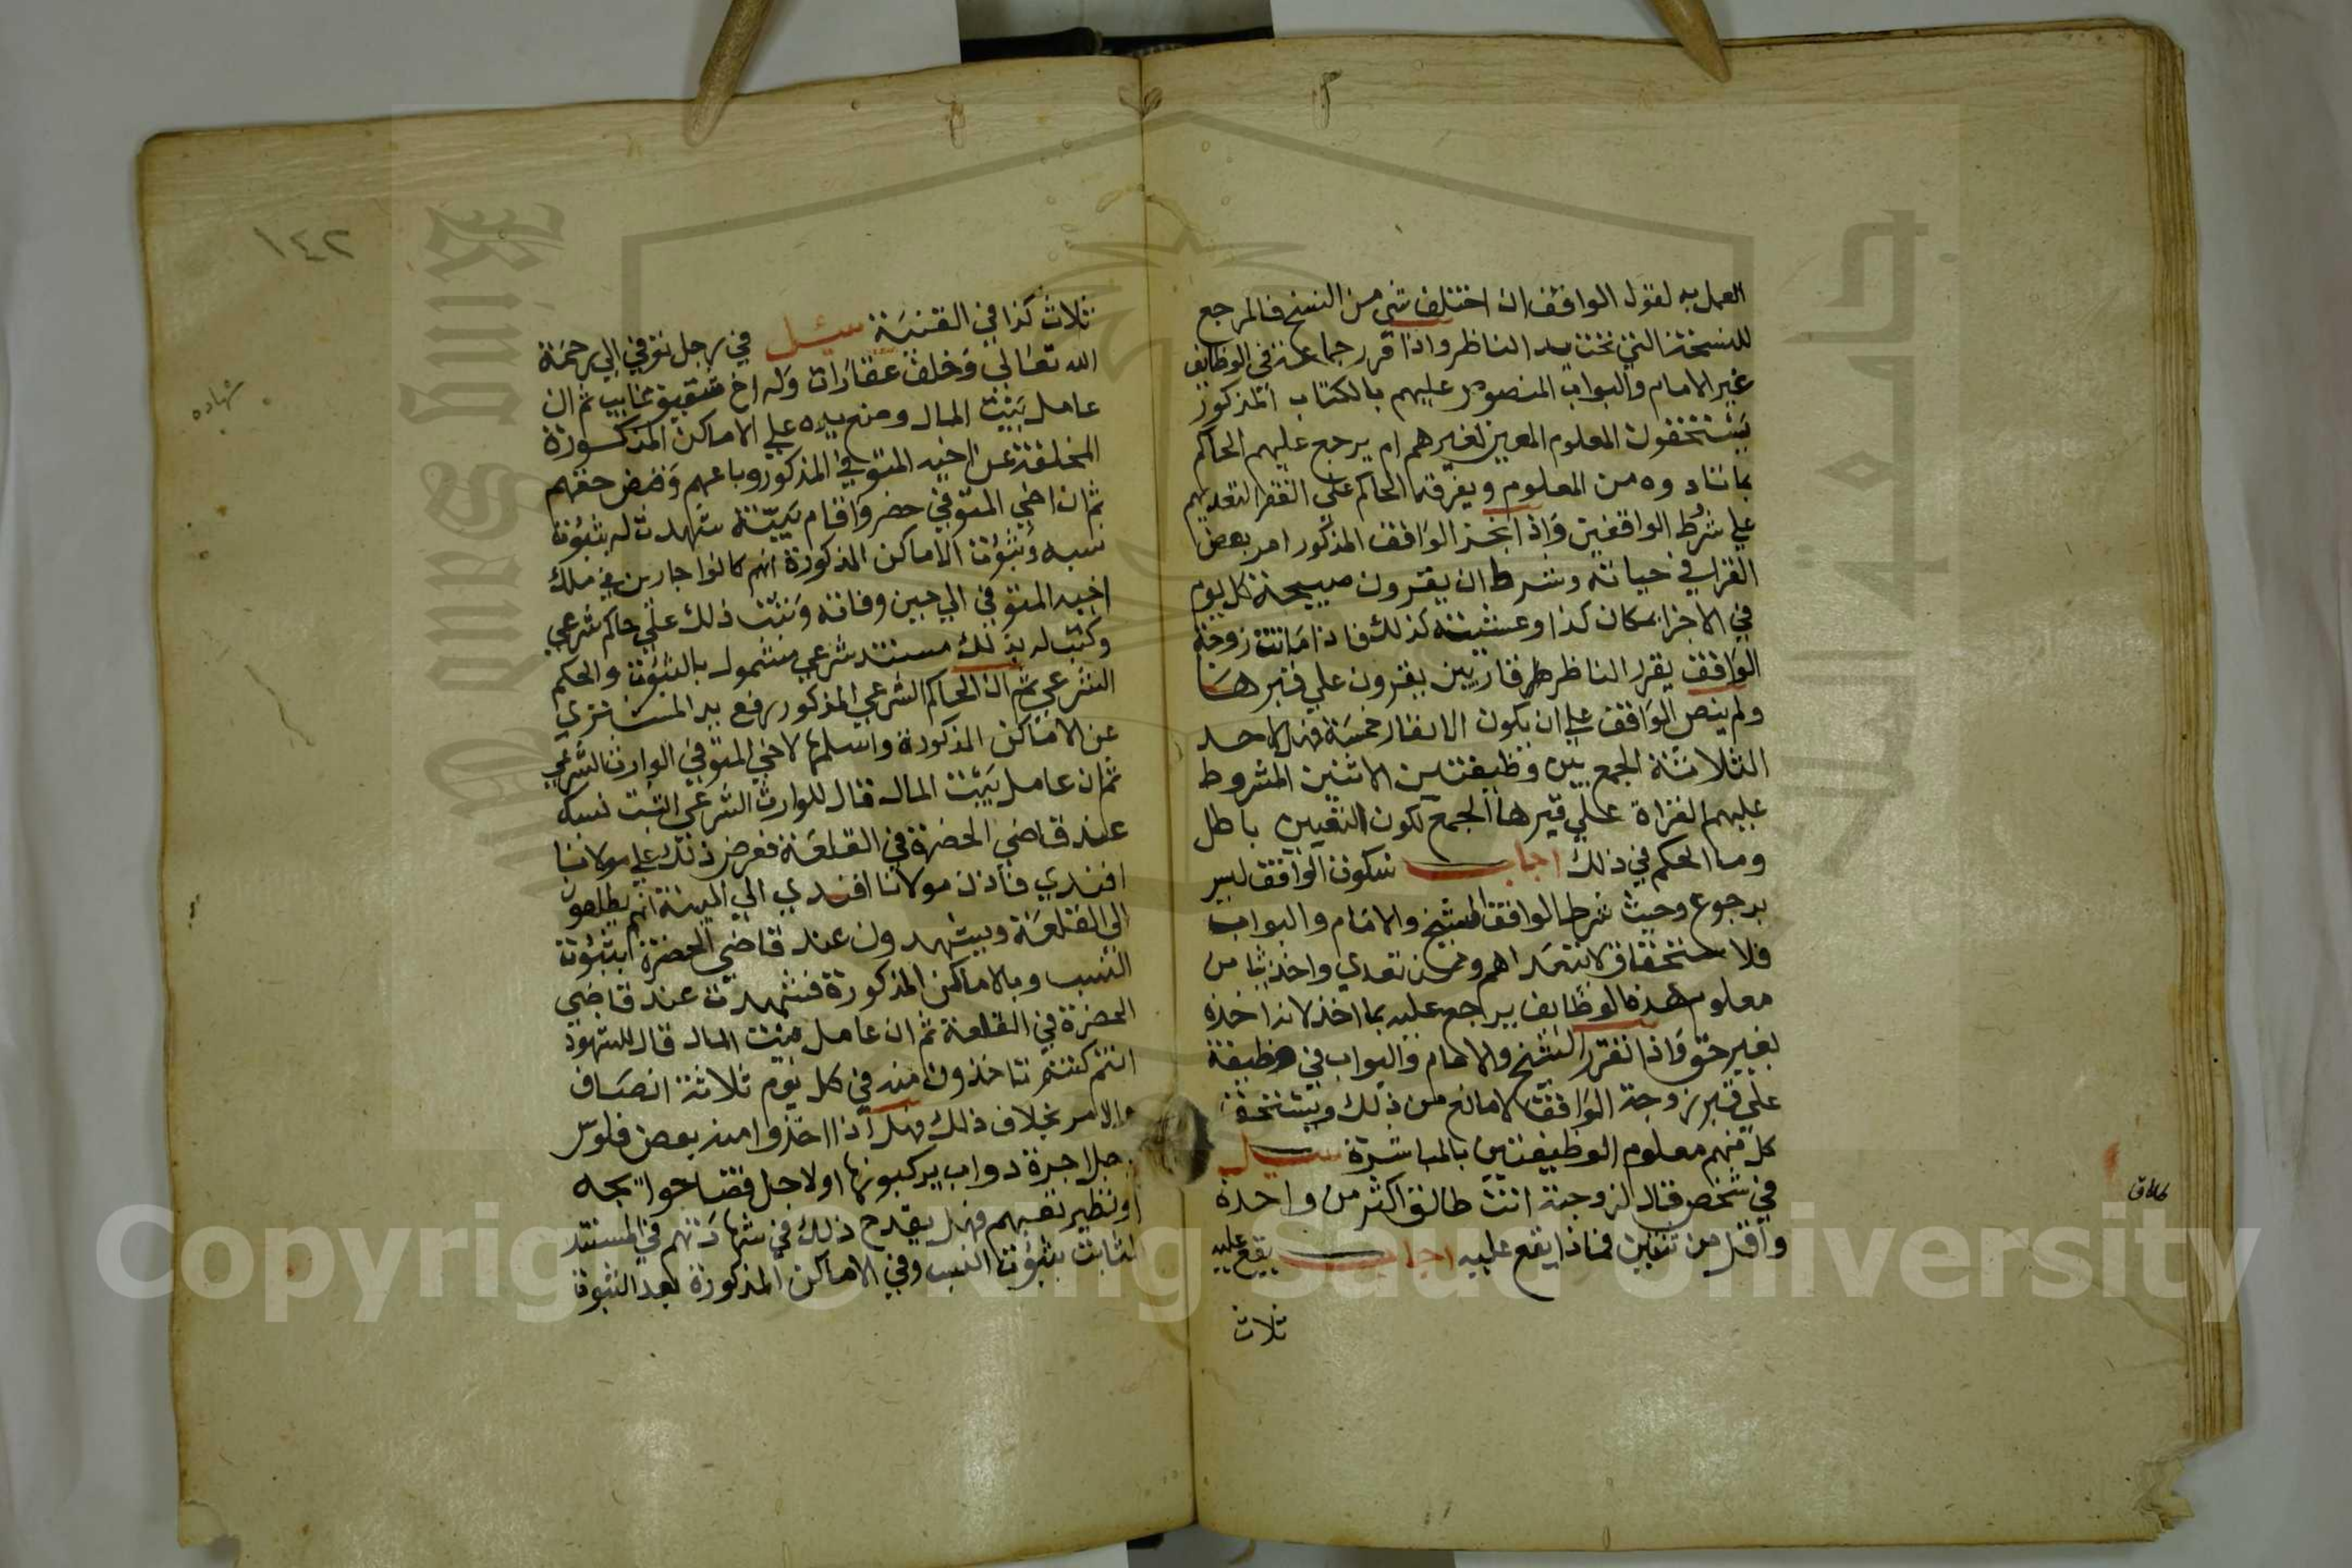 العمل به لقول الواقف ان اختلف شي من النسخ فالمرجع
للنسخة التي تحت يد الناظر واذا قرر جماعة في الوظايف
غير الامام والبواب المنصوص عليهم بالكتاب المذكور
يستحقون المعلوم المعين لغيرهم ام يرجع عليهم الحاكم
بما تناولوه من المعلوم ويفرقه الحاكم علي الفقرا لتعديهم
علي شرط الواقفين واذا الواقف المذكور امر بعض
القرا في حياته وشرط ان يقرون صبيحة كل يوم
في الاجزا بمكان كذا وعشيته كذلك فاذا ماتت زوجة
الواقف يقرر الناظر قاريين يقرون علي قبرها
ولم ينص الواقف علي ان يكون الانفار خمسة فهل لاحد
الثلاثة الجمع بين وظيفتين الاثنين المشروط
عليهم القراة علي قبرها الجمع لكون التعيين باطل
وما الحكم في ذلك اجاب سكوت الواقف ليس
برجوع وحيث شرط الواقف الشيخ والامام والبواب
فلا استحقاق لاحد اهم ومن تعدي واخذ شيا من
معلوم هذه الوظايف يراجع عليه بما اخذ لانه اخذه
بغير حق واذا تقرر الشيخ والامام والبواب في وظيفة
علي قبر زوجة الواقف لا مانع من ذلك ويستحق
كل منهم معلوم الوظيفتين بالمباشرة سيل
في شخص قال لزوجته انت طالق اكثر من واحدة
واقل من ثنتين فماذا يقع عليه اجاب يقع عليه
ثلاث
طلاق
١٤٢
ثلاث كذا في القنية سئل في رجل توفي الي رحمة
الله تعالي وخلف عقارات وله اخ شقيق غايب ثم ان
عامل بيت المال وضع يده علي الاماكن المذكورة
المخلفة عن اخيه المتوفي المذكور وباعهم وقبض حقهم
ثم ان اخي المتوفي حضر واقام بينة شهدت له بثبوت
نسبه وثبوت الاماكن المذكورة انهم كانوا جارين في ملك
اخيه المتوفي الي حين وفاته وثبت ذلك علي حاكم شرعي
وكتب له بذلك مستند شرعي مشمول بالثبوت والحكم
الشرعي ثم ان الحاكم الشرعي المذكور رفع يد المشتري
عن الاماكن المذكورة واسلمها لاخي المتوفي الوارث الشرعي
ثم ان عامل بيت المال قال للوارث الشرعي اثبت نسبك
عند قاضي الحضرة في القلعة فعرض ذلك علي مولانا
افندي فاذن مولانا افندي الي البينة انهم يطلعون
الي القلعة ويشهدون عند قاضي الحضرة بثبوت
النسب وبالاماكن المذكورة فشهدت عند قاضي
الحضرة في القلعة ثم ان عامل بيت المال قال للشهود
انتم كنتم تاخذون منه في كل يوم ثلاثة انصاف
والامر بخلاف ذلك فهل اذا اخذوا منه بعض فلوس
لاجل اجرة دواب يركبونها او لاجل فضا حوايجه
او نظير تعبهم فهل يقدح ذلك في شهادتهم في المستند
الثابت بثبوت النسب وفي الاماكن المذكورة بعد الثبوت
شهاده
Copyright © King Saud University